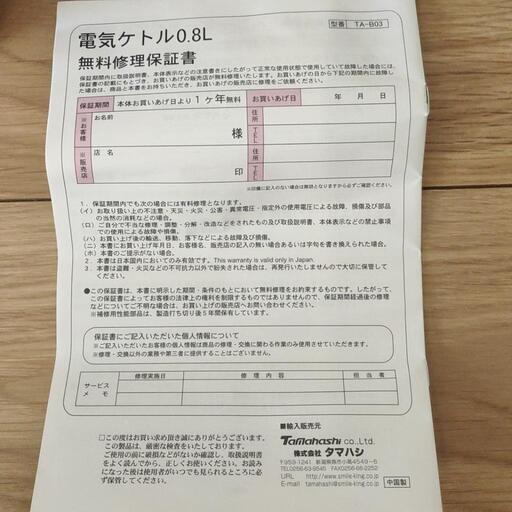 型番 TA-B03
電気ケトル0.8L
無料修理保証書
保証期間内に取扱説明書、本体表示などの注意書きにしたがって正常な使用状態で使用していて故障した場合には、
保証書の記載にもとづき、お買いあげの販売店が無料修理いたします。お買いあげの日から下記の期間内に故障し
た場合は、商品と本書をお持ちいただき、お買いあげの販売店に修理をご依頼ください。
保証期間 本体お買いあげ日より1ヶ年無料 お買いあげ日 年 月 日
※お客様 お名前 様 住所 TEL
※販売店 店名 印 住所 TEL
※印欄に記入のない場合は無効となりますから必ずご確認ください。
1．保証期間内でも次の場合には有料修理となります。
(イ) お取り扱い上の不注意・天災・火災・公害・異常電圧・指定外の使用電圧による故障、損傷及び部品
の当然の消耗などの場合。
(ロ) ご自分で不当な修理・調整・分解・改造などをされたもの及び取扱説明書、本体表示などの禁止事項
での使用による故障や損傷。
(ハ) お買い上げ後の輸送、移動、落下などによる故障及び損傷。
(ニ) 本書にお買い上げ年月日、お客様名、販売店の記入の無い場合あるいは字句を書き換えられた場合。
(ホ) 本書のご提示がない場合。
2．本書は日本国内においてのみ有効です。This warranty is valid only in Japan.
3．本書は盗難・火災などの不可抗力以外で紛失された場合は、再発行いたしませんので大切に保管して
ください。
●この保証書は、本書に明示した期間・条件のもとにおいて無料修理をお約束するものです。したがっ
てこの保証書によってお客様の法律上の権利を制限するものではありませんので、保証期間経過後の修理
などについてご不明な場合は、お買い上げの販売店へお問い合わせください。
※補修用性能部品は、製造打ち切り後5年間保有しています。
保証書にご記入いただいた個人情報について
※ご記入いただいたお客様の個人情報は商品の修理・交換に関わる作業のみ使用させていただきます。
※修理・交換以外の業務や第三者に提供することはございません。
サービスメモ 修理実施日 修理内容 担当者
□この度はお買い求め頂き誠にありがとうございます。
この製品は、厳密な検査をいたしております。
ご使用の前に破損などがないか確認し、取扱説明書
をよく読んでから、正しくお使いください。お読み
になった後は使用者がいつでも見られるところに必
ず保管してください。
■輸入販売元
Tamahashi co.,Ltd.
株式会社 タマハシ
〒959-1241 新潟県燕市小高4549-6
TEL0256-63-9545 FAX0256-66-2252
URL http://www.smile-king.co.jp
E-mail tamahashi@smile-king.co.jp
中国製